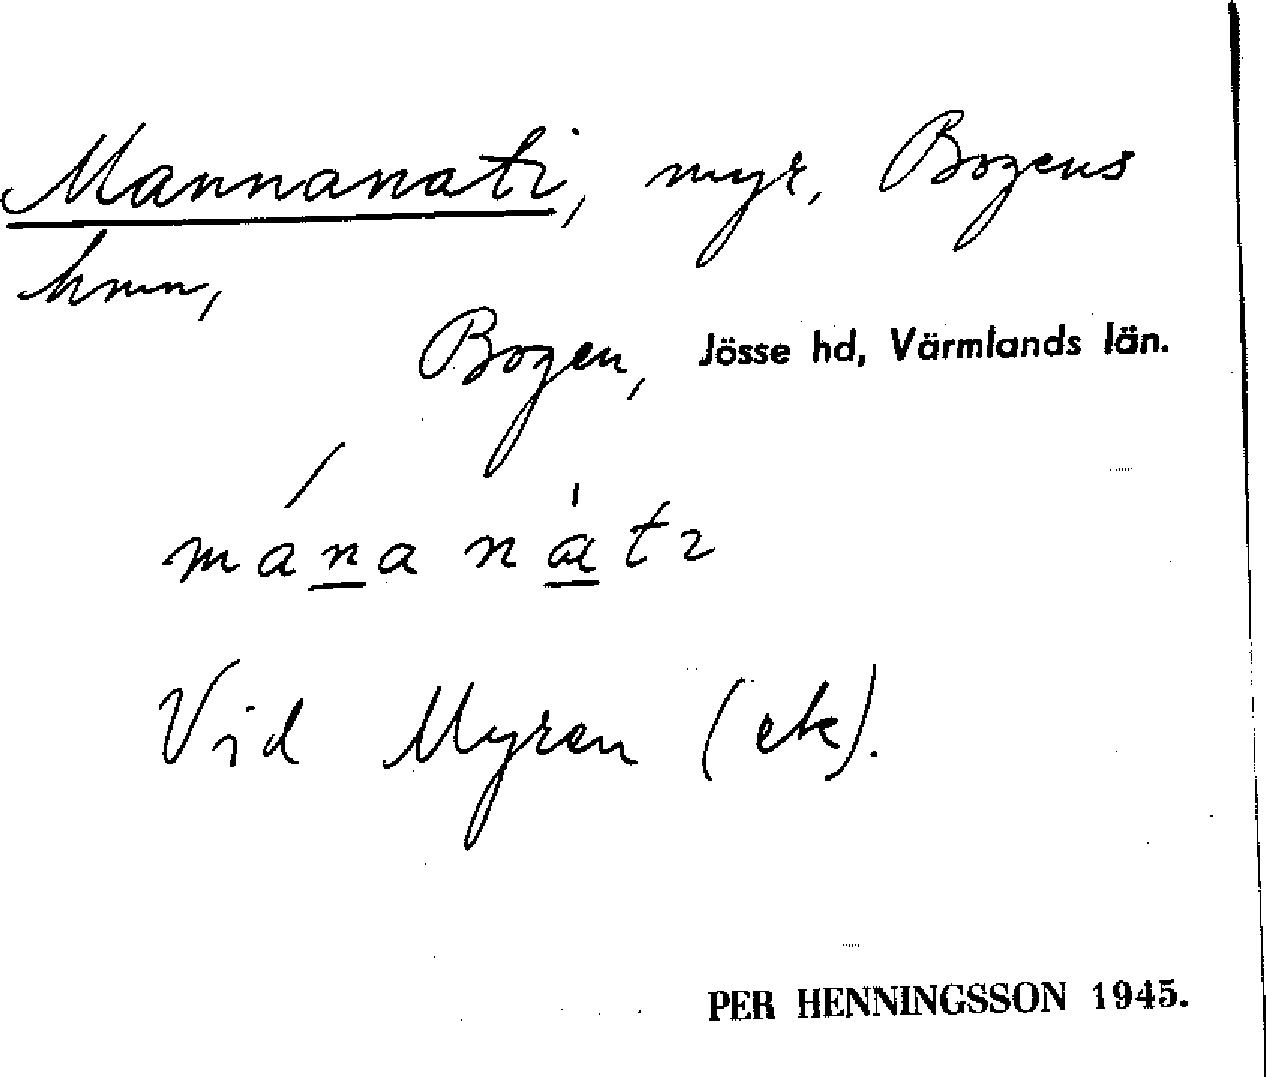 Mannanati, myr, Bogens
hmn,
Bogen, Jösse hd, Värmlands län.
mánanàtı
Vid Myren (ek).
PER HENNINGSSON 1945.